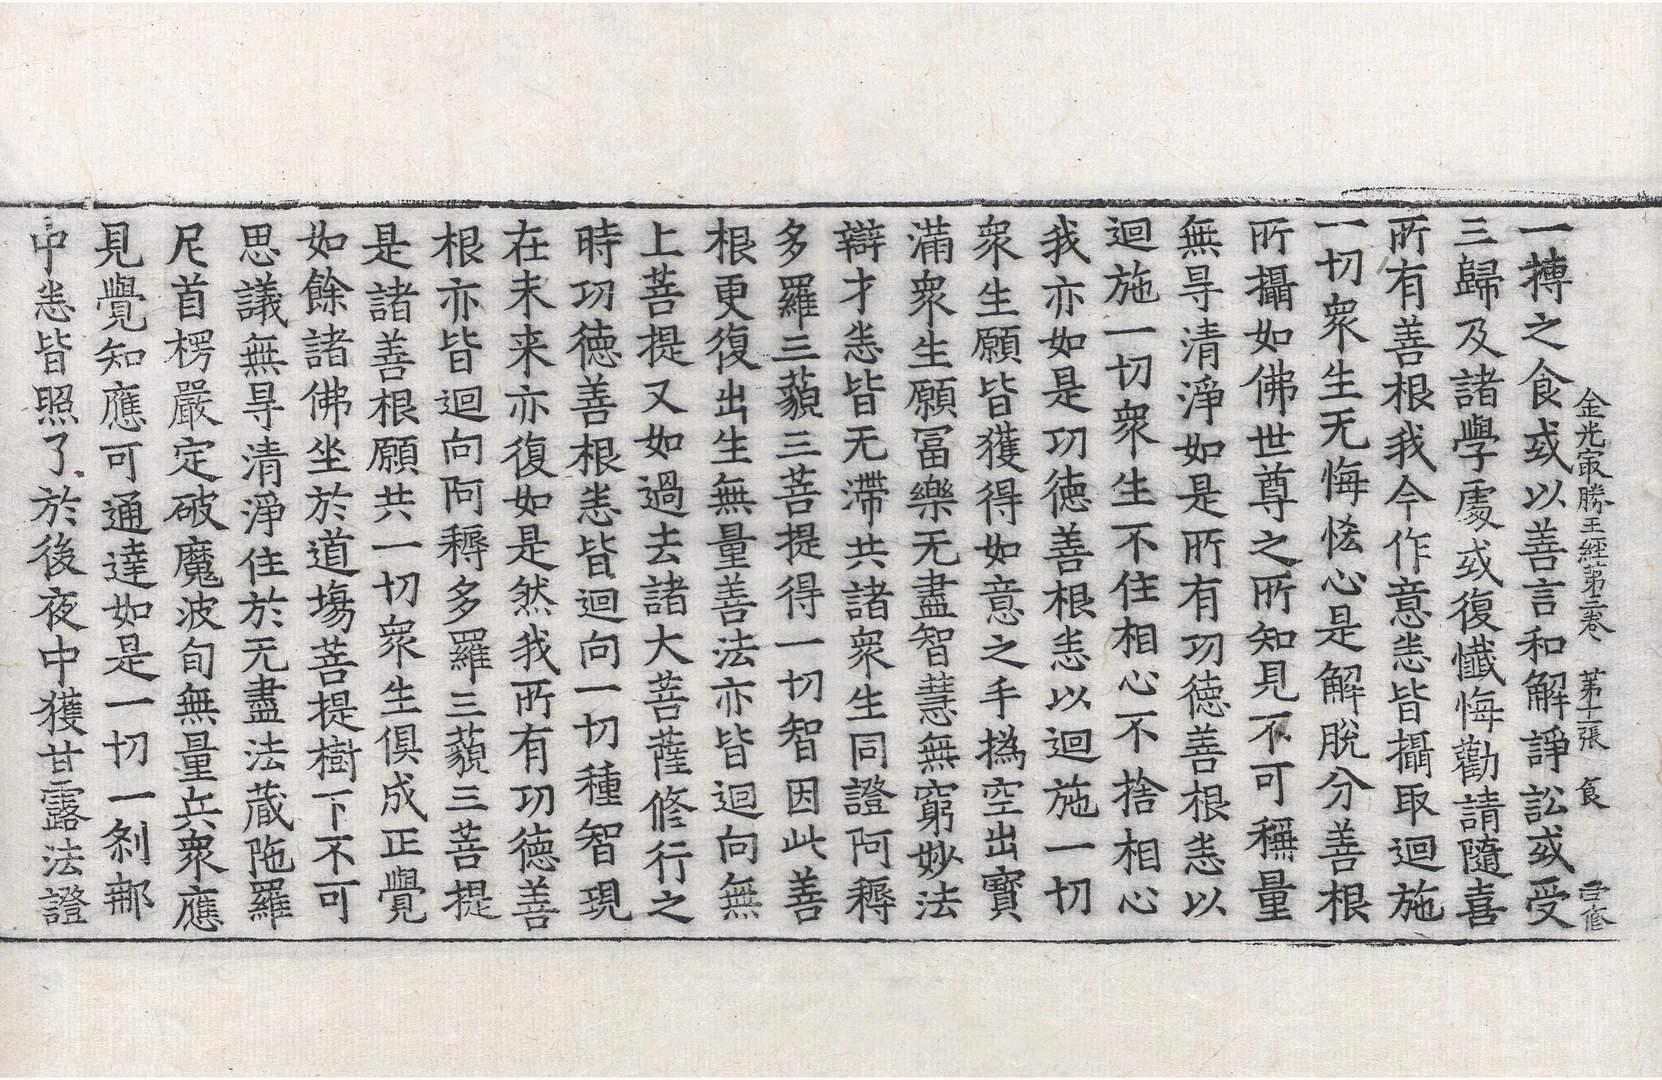 金光㝡勝王經第三卷　第十一張　食　云修
一摶之食或以善言和解諍訟或受
三歸及諸學處或復懺悔勸請隨喜
所有善根我今作意悉皆攝取迴施
一切衆生无悔恡心是解脫分善根
所攝如佛世尊之所知見不可稱量
無㝵清淨如是所有功德善根悉以
迴施一切衆生不住相心不捨相心
我亦如是功德善根悉以迴施一切
衆生願皆獲得如意之手撝空出寶
滿衆生願冨樂无盡智慧無窮妙法
辯才悉皆无滯共諸衆生同證阿耨
多羅三藐三菩提得一切智因此善
根更復出生無量善法亦皆迴向無
上菩提又如過去諸大菩薩修行之
時功德善根悉皆迴向一切種智現
在未来亦復如是然我所有功德善
根亦皆迴向阿耨多羅三藐三菩提
是諸善根願共一切衆生俱成正覺
如餘諸佛坐於道場菩提樹下不可
思議無㝵清淨住於无盡法藏陁羅
尼首楞嚴定破魔波旬無量兵衆應
見覺知應可通達如是一切一剎那
中悉皆照了於後夜中獲甘露法證